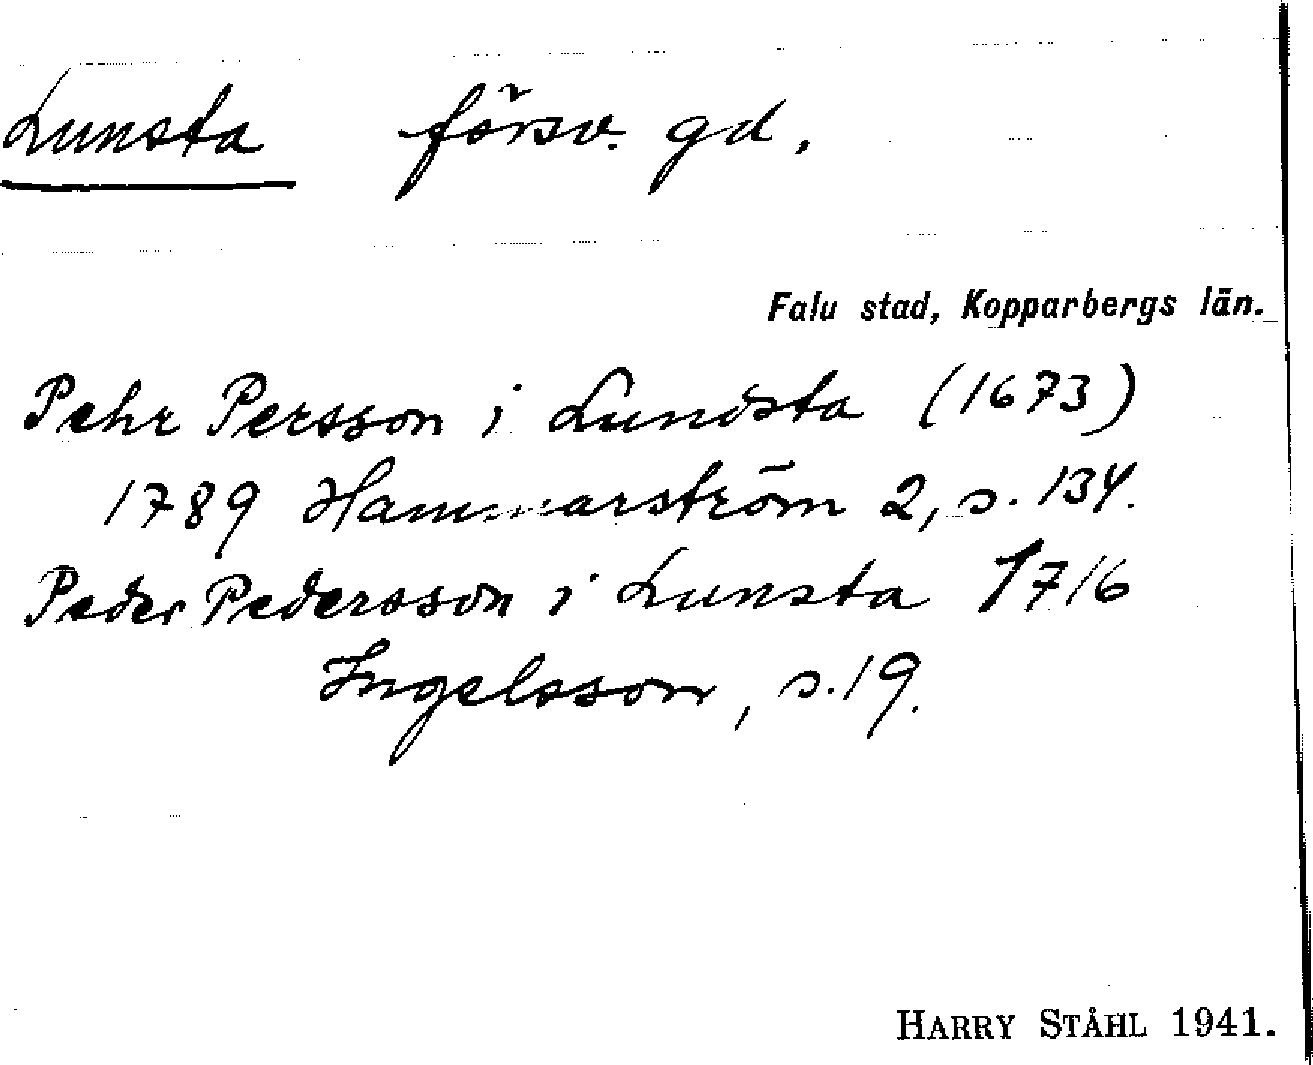 Lunsta försv. gd.
Falu stad, Kopparbergs län.
Pehr Persson i Lundsta (1673)
1789 Hammarström 2, s. 134.
Peder Pedersson i Lunsta 1716
Ingelsson, s. 19.
HARRY STÅHL 1941.